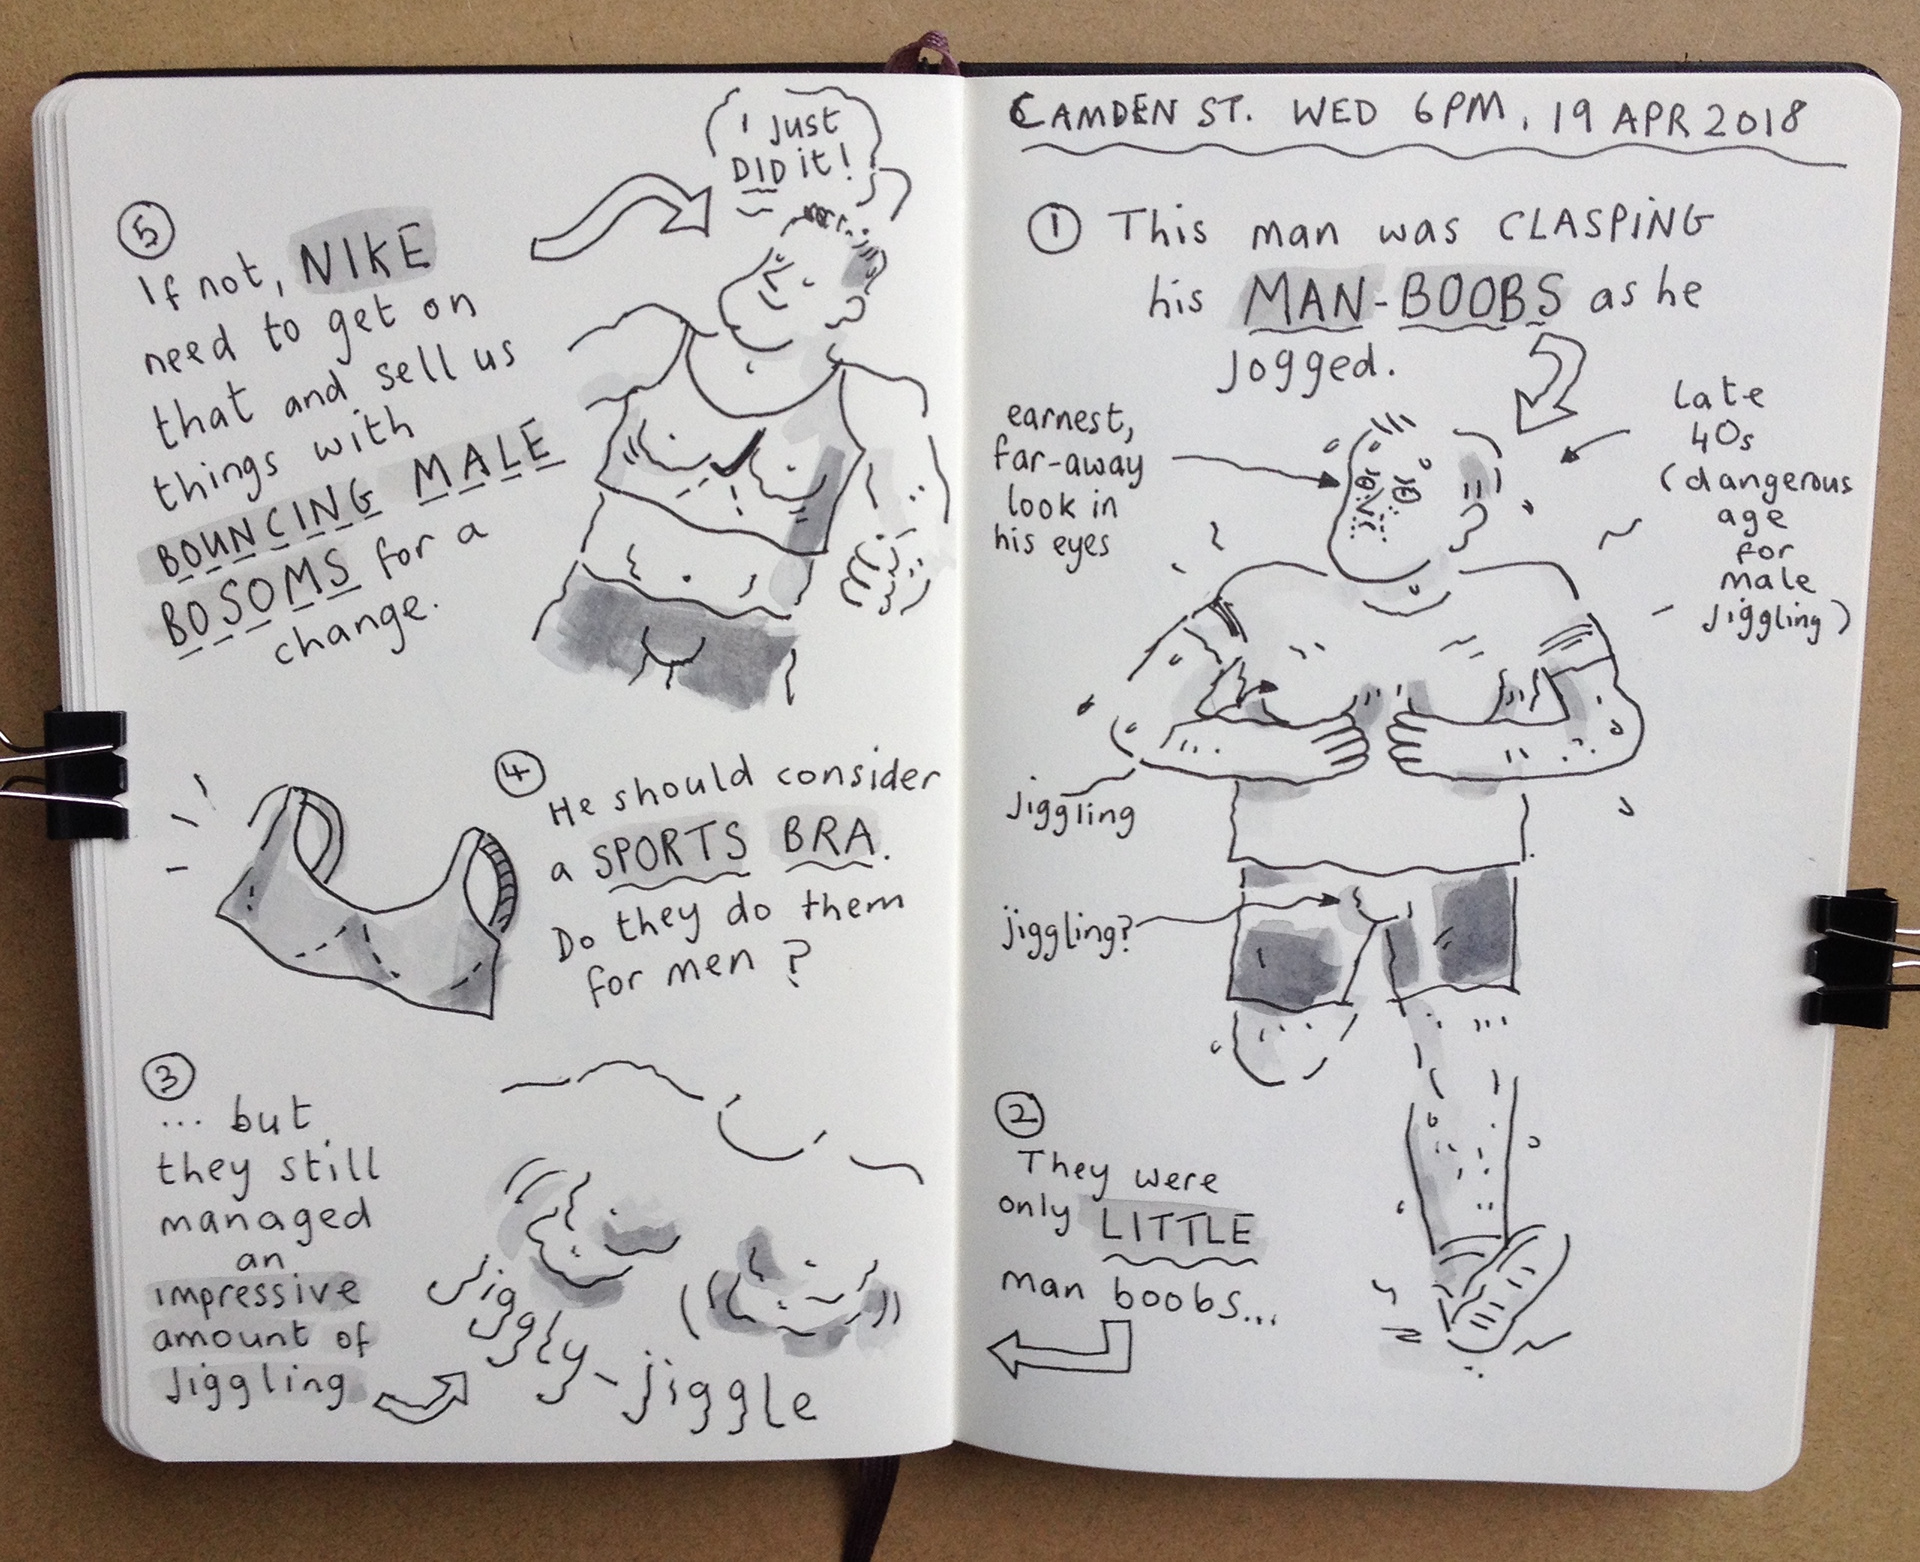 CAMDEN ST. WED 6PM, 19 APR 2018
① This man was CLASPING
his MAN-BOOBS as he
jogged.
earnest,
far-away
look in
his eyes
late
40s
(dangerous
age
for
male
jiggling)
jiggling
jiggling?
② They were
only LITTLE
man boobs...
③
... but
they still
managed
an
impressive
amount of
jiggling
Jiggly-jiggle
④ He should consider
a SPORTS BRA.
Do they do them
for men?
⑤
If not, NIKE
need to get on
that and sell us
things with
BOUNCING MALE
BOSOMS for a
change.
I just
DID it!